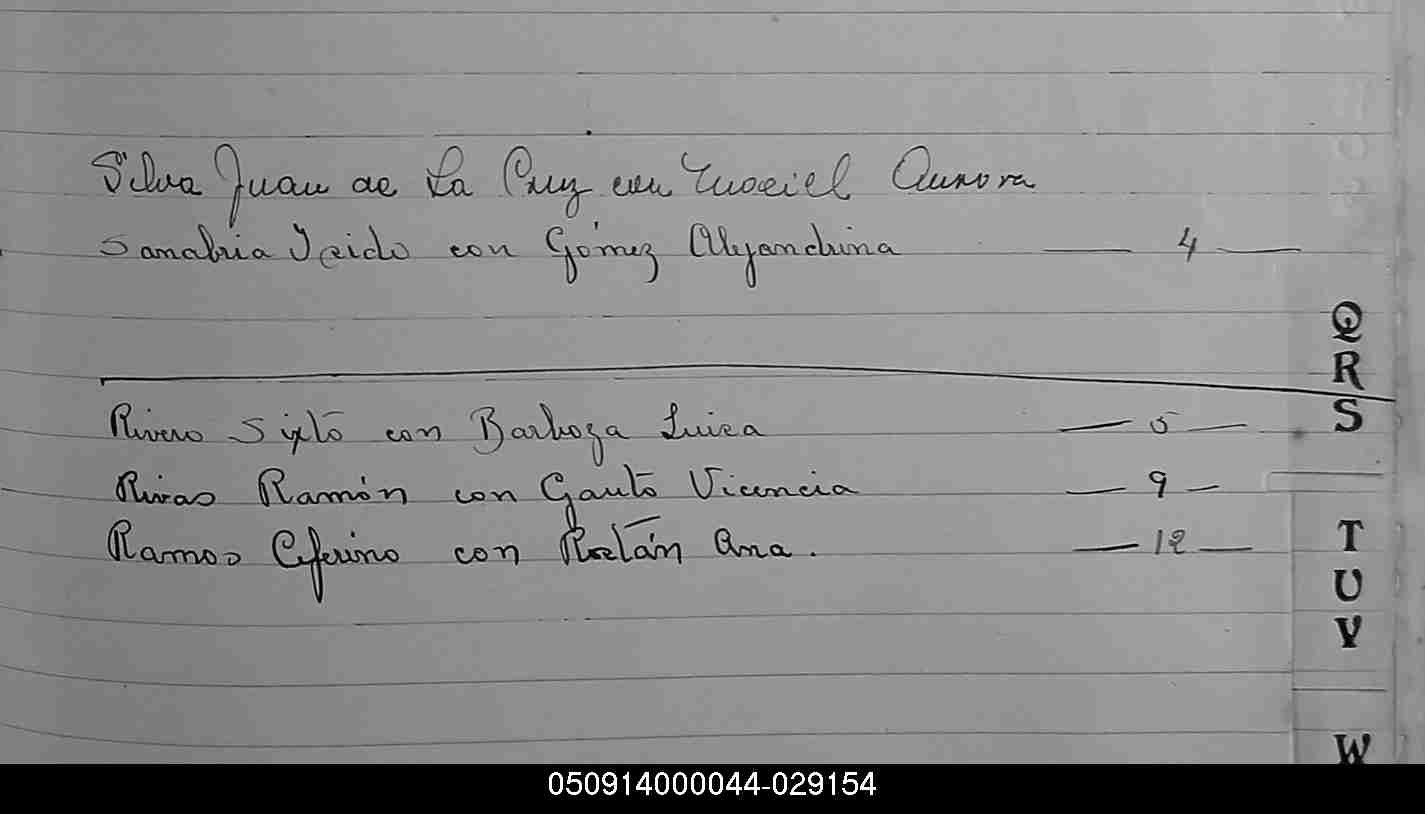 Silva Juan de La Cruz con Maciel Aurora
Sanabria Isido con Gómez Alejandrina — 4 —
Q
R
S
Rivero Sixto con Barboza Luisa — 5 —
Rivas Ramón con Gauto Vicencia — 9 —
Ramos Ceferino con Roltán Ana. — 12 —
T
U
V
W
050914000044-029154